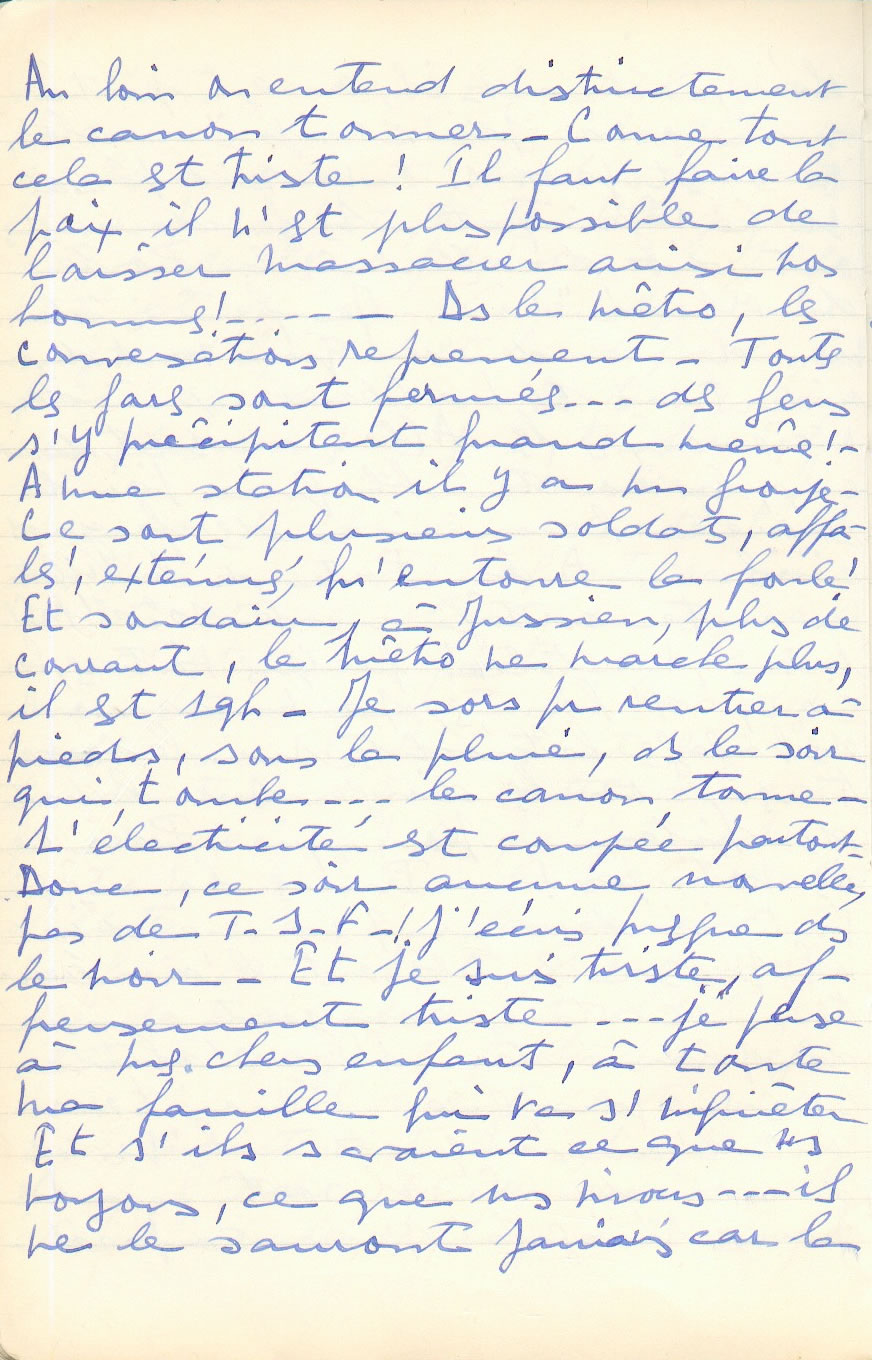 Au loin on entend distinctement
le canon tonner - Comme tout
cela est triste ! Il faut faire la
paix il n'est plus possible de
laisser massacrer ainsi nos
hommes!----- Ds le métro, les
conversations reprennent - Toutes
les gares sont fermées--- des gens
s'y précipitent quand même!-
A une station il y a un groupe-
Ce sont plusieurs soldats, affa-
lés, exténués, qu'entoure la foule!
Et soudain, à Jussieu, plus de
courant, le métro ne marche plus,
il est 19h - Je sors pr rentrer à
pieds, sous la pluie, ds le soir
qui tombe--- le canon tonne-
L'électricité est coupée partout-
Donc, ce soir aucune nouvelle,
pas de T-S-F-! J'écris presque ds
le noir - Et je suis triste, af-
freusement triste --- je pense
à mes chers enfants, à toute
ma famille qui va s'inquiéter
Et s'ils savaient ce que ns
voyons, ce que ns vivons---ils
ne le sauront jamais car la